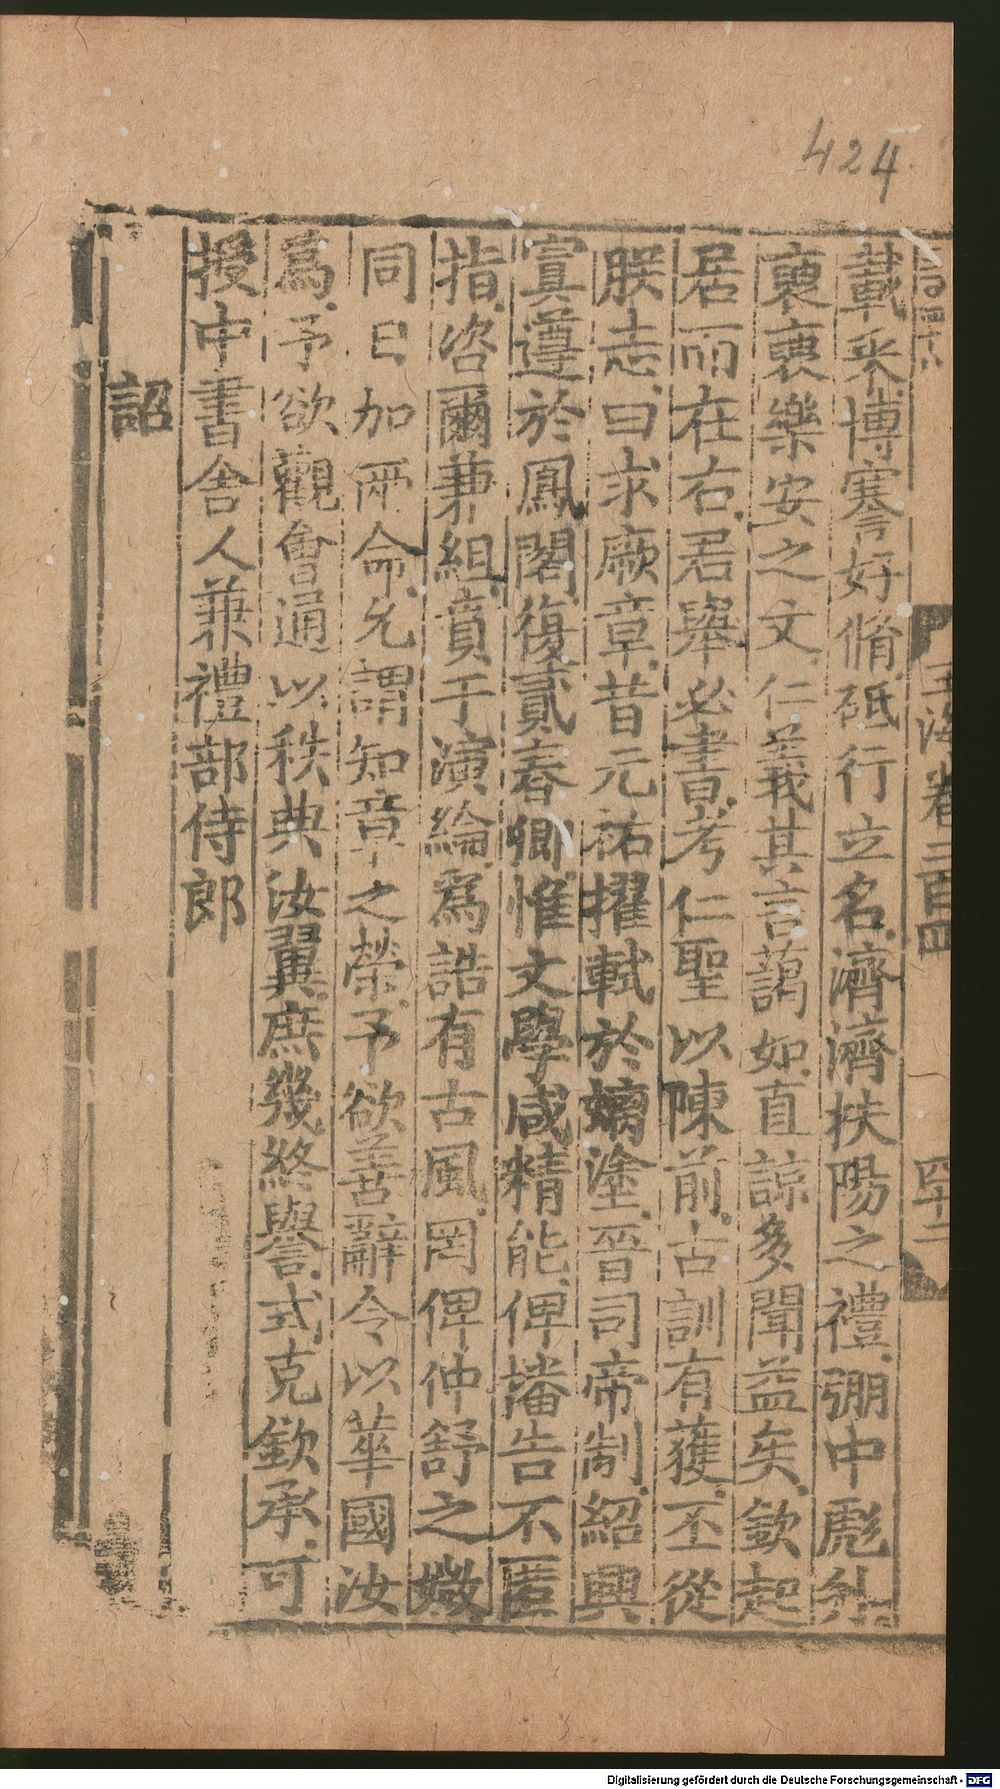 424
玉海卷二百四
四十二
載采博謇好脩砥行立名濟濟扶陽之禮弸中彪外
褎褎樂安之文仁義其言藹如直諒多聞益矣欽起
居而在右君舉必書考仁聖以陳前古訓有獲丕從
朕志曰求厥章昔元祐擢軾於螭塗晉司帝制紹興
寘遵於鳳閣復貳春卿惟文學咸精能俾播告不匿
指咨爾兼組賁于演綸為誥有古風罔俾仲舒之媺
同日加兩命允謂知章之榮予欲善辭令以華國汝
為予欲觀會通以秩典汝翼庶幾終譽式克欽承可
授中書舍人兼禮部侍郎
詔
Digitalisierung gefördert durch die Deutsche Forschungsgemeinschaft - DFG